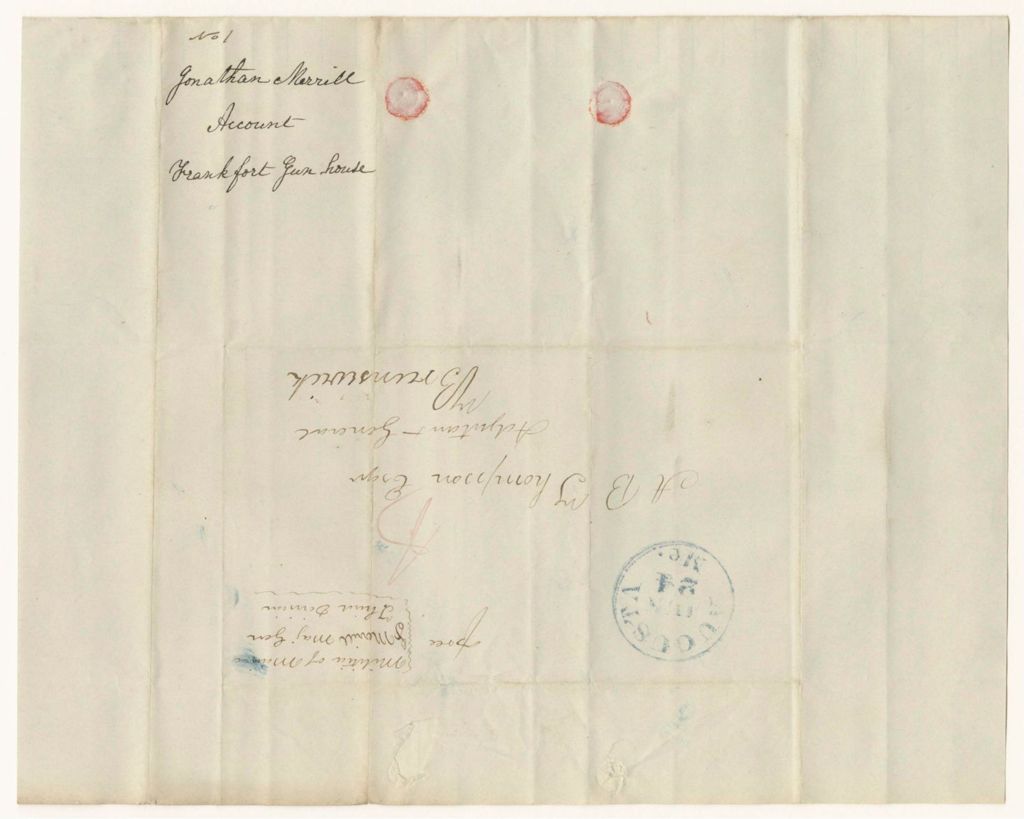 No 1
Jonathan Merrill
Account
Frankfort Gun house
Militia of Maine
Maj Gen
Third Division
free
A B Thompson Esqr
Adjutant General
Brunswick
AUGUSTA
24
Me.